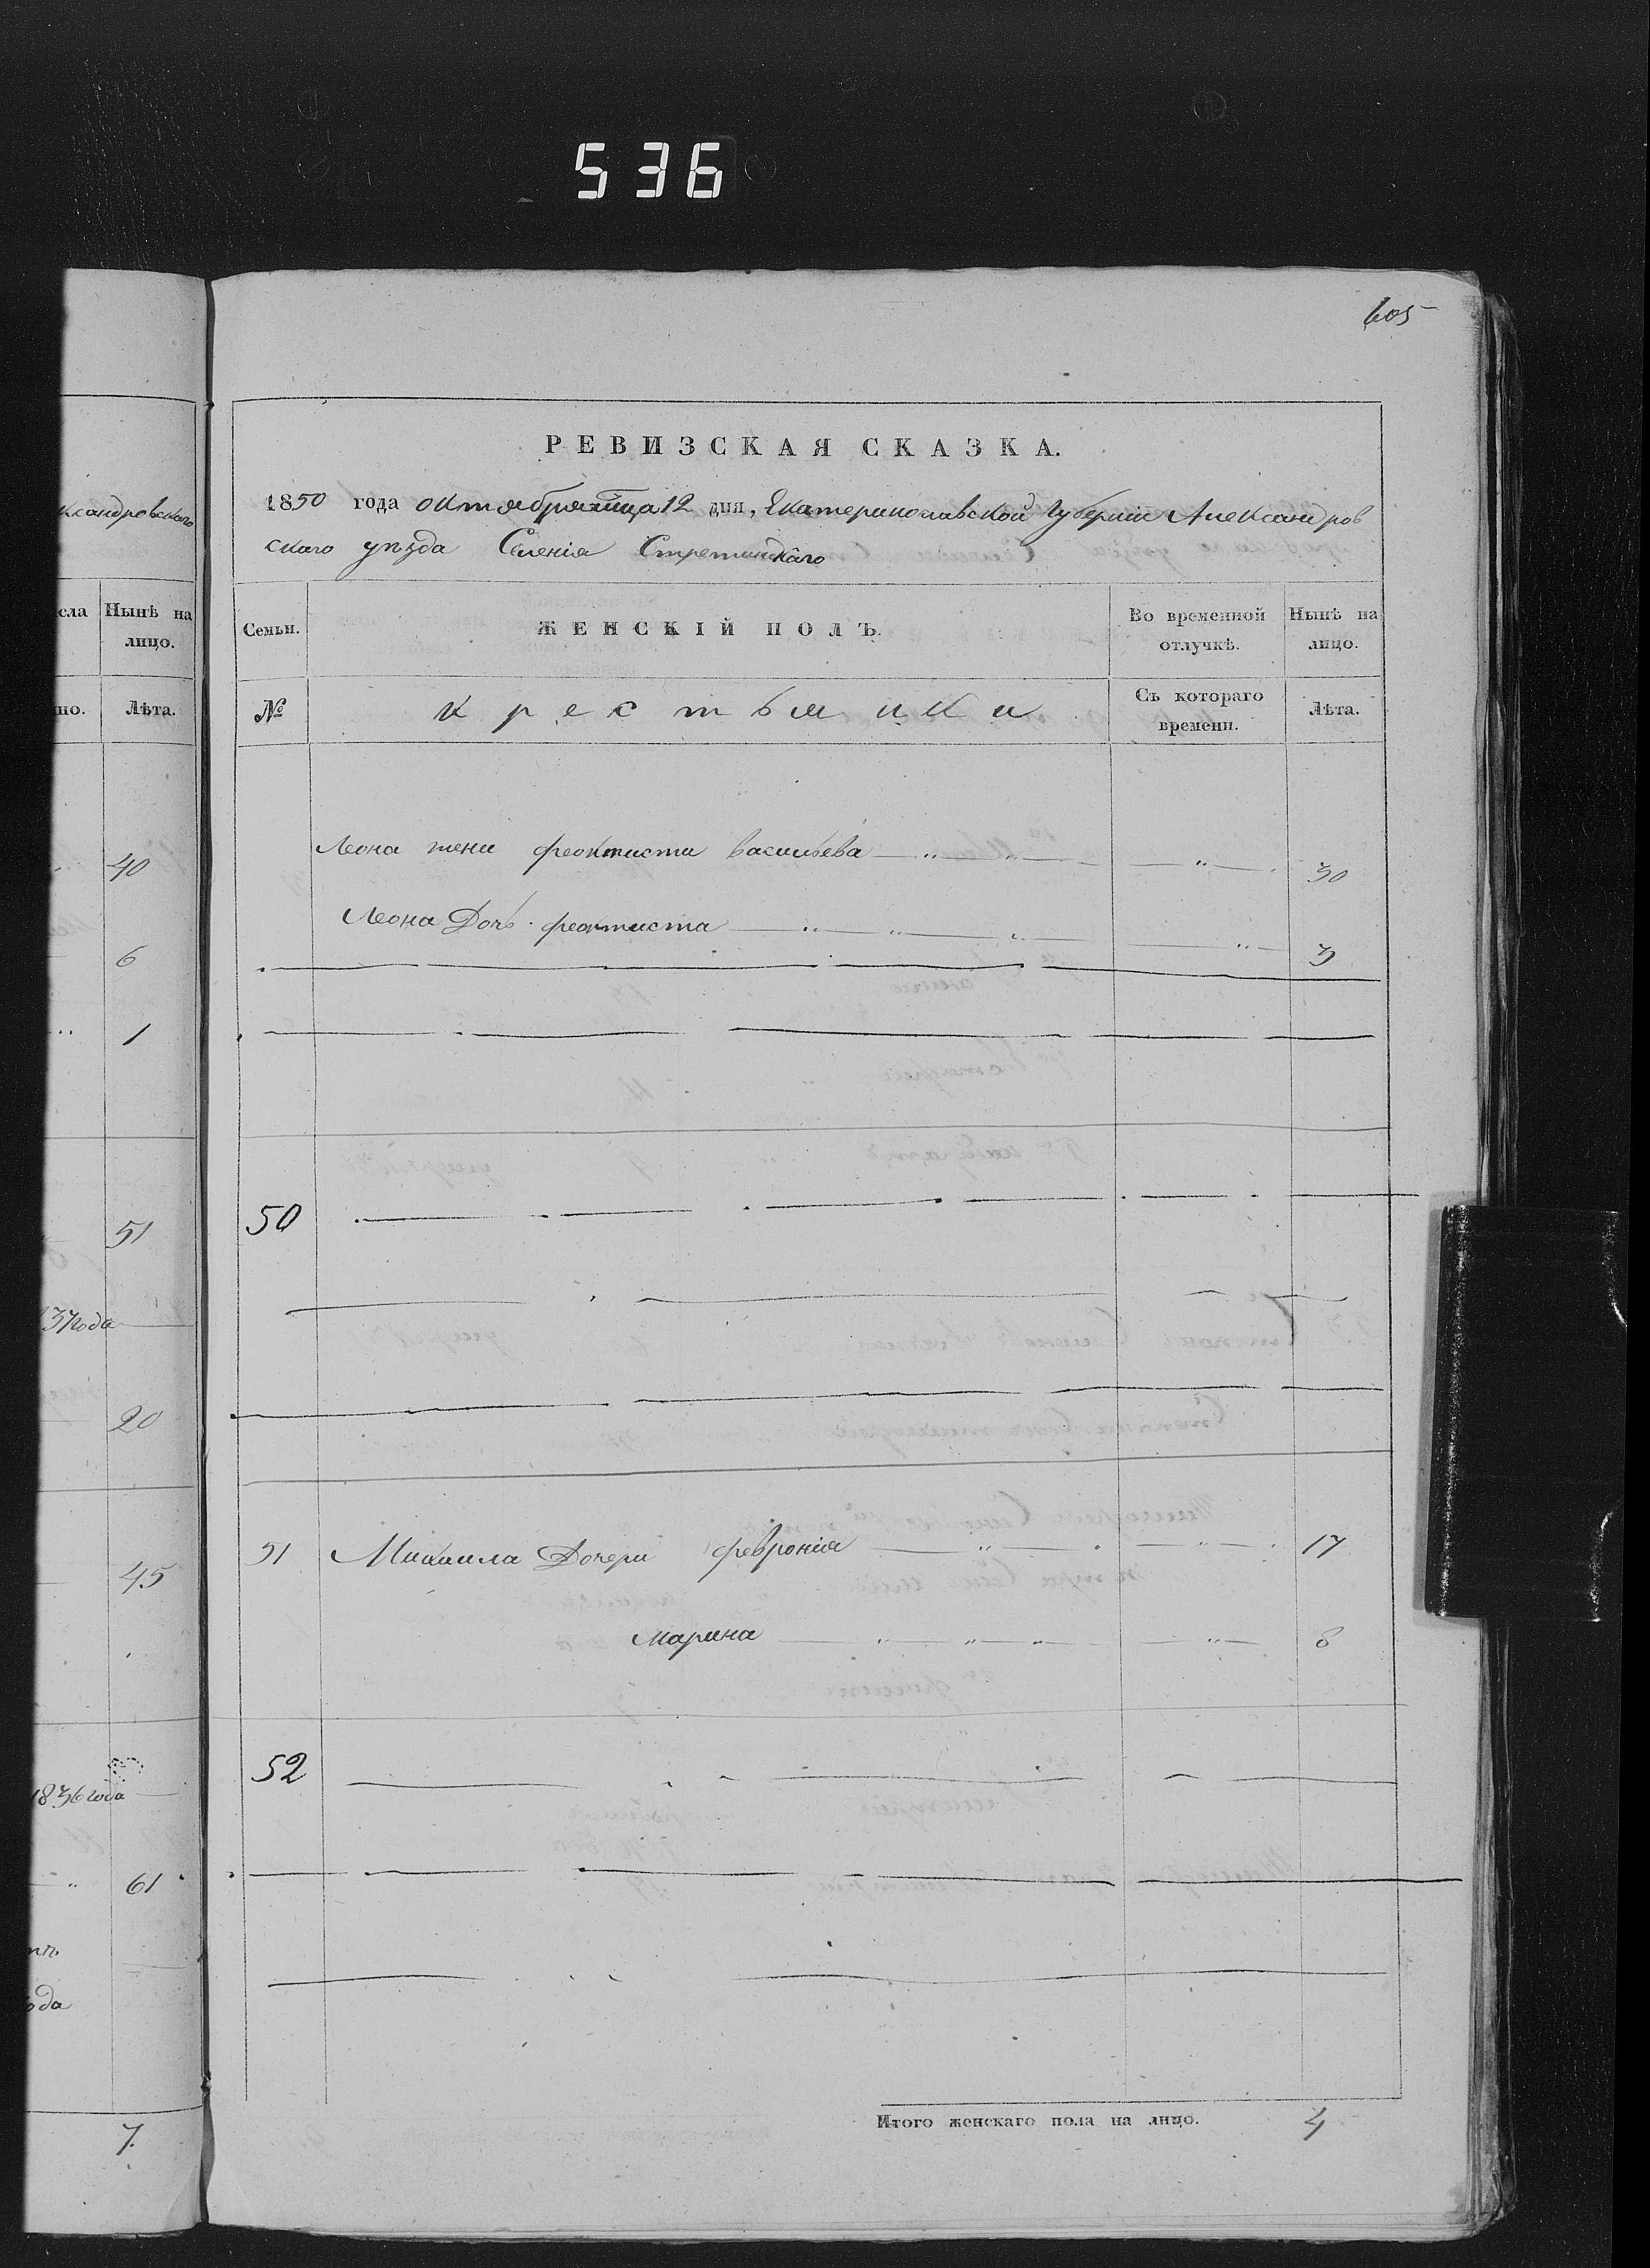 536
605
ксандровскаго
сла
Нынѣ на
лицо.
но.
Лѣта.
40
6
1
51
37 года
20
45
1836 года
61
ода
7.
РЕВИЗСКАЯ СКАЗКА.
1850 года октября мца 12 дня, Екатеринославской Губерніи Александров
скаго уѣзда Селенія Стретинскаго
Семьи.
ЖЕНСКІЙ ПОЛЪ.
Во временной
отлучкѣ.
Нынѣ на
лицо.
№
Крестьянки
Съ котораго
времени.
Лѣта.
Леона жена феоктиста васильева — „ — „ — — „ — 30
Леона Дочь феоктиста — „ — „ — „ — — „ — 3
50
51 Михаила Дочери феврония — „ — — „ — 17
Марина — „ — „ — „ — — „ — 8
52
Итого женскаго пола на лицо. 4